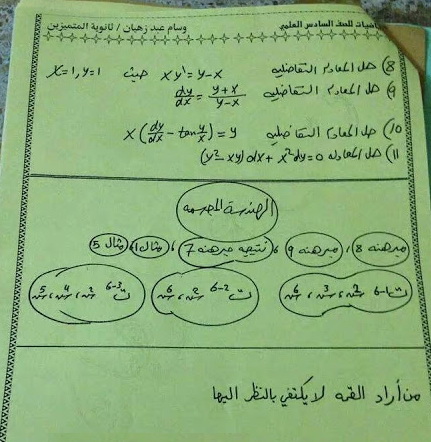 رياضيات للصف السادس العلمي وسام عبد زهيان / ثانوية المتميزين
8) حل المعادلة التفاضلية xy' = y-x حيث x=1, y=1
9) حل المعادلة التفاضلية dy/dx = y+x/y-x
10) حل المعادلة التفاضلية x(dy/dx - tan y/x) = y
11) حل المعادلة (y²-xy)dx + x²dy=0
الهندسة المجسمة
مبرهنة 8، مبرهنة 9، نتيجة مبرهنة 7، مثال 1، مثال 5
ت 6-1 س2، س3، س6 ت 6-2 س2، س6 ت 6-3 س2، س4، س5
من أراد القمة لا يكتفي بالنظر اليها